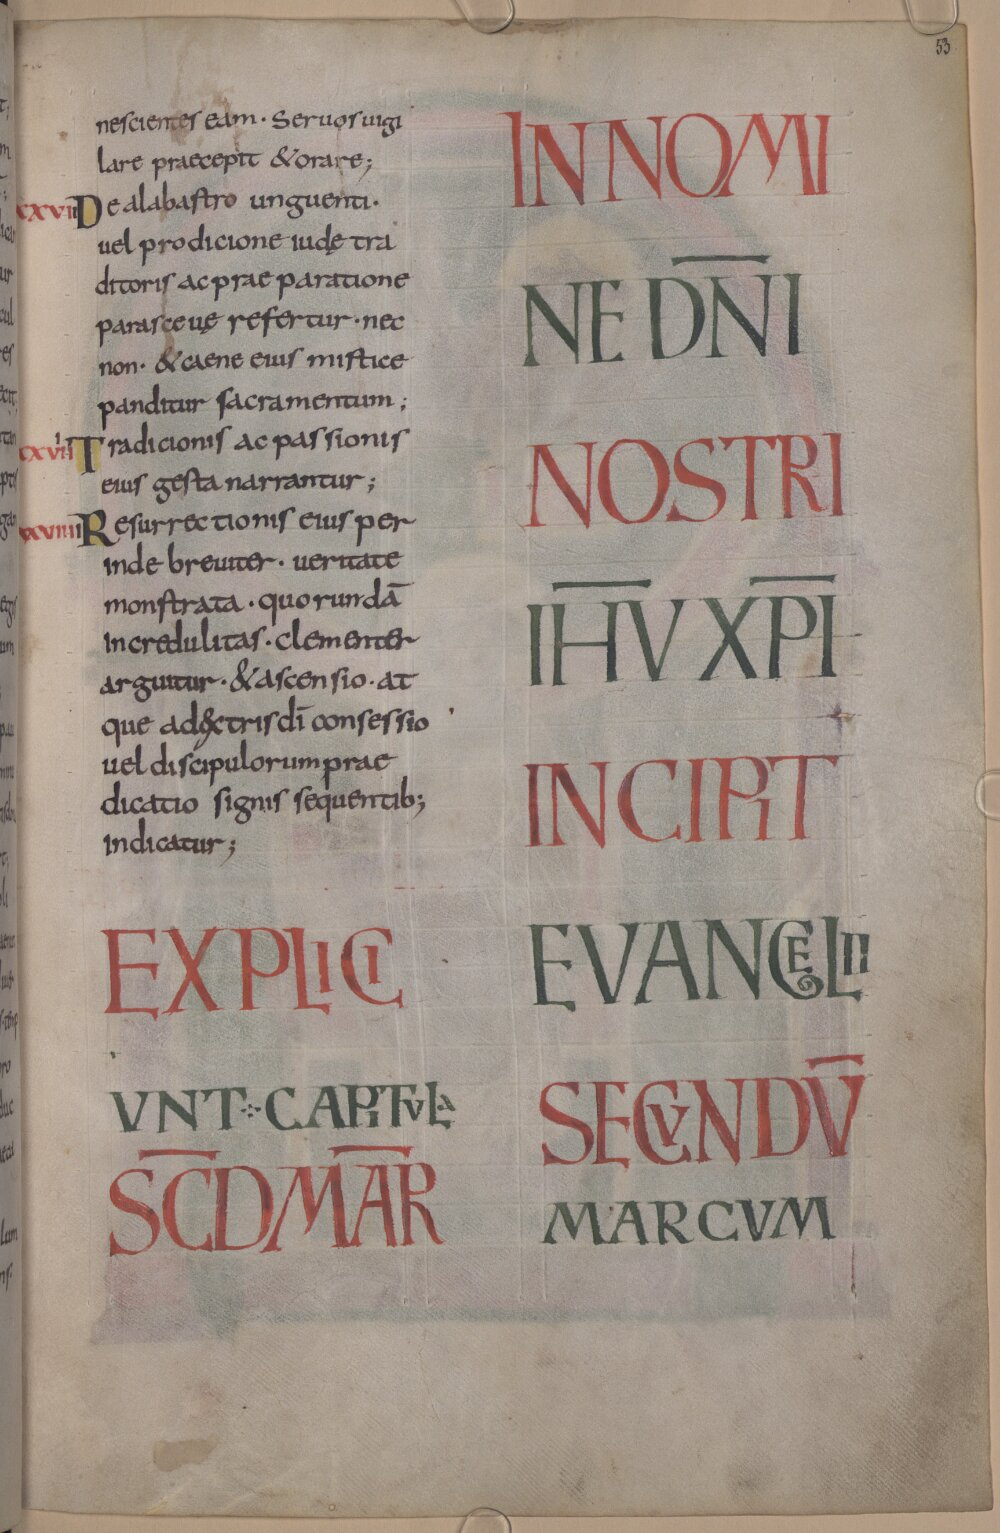 53
nescientes eam · Seruos uigi
lare praecepit & orare;
XXVII De alabastro unguenti ·
uel prodicione iudę tra
ditoris ac prae paratione
parasceuę refertur · nec
non · & caene eius mistice
panditur sacramentum;
XXVIII Tradicionis ac passionis
eius gesta narrantur;
XXVIIII Resurrectionis eius per
inde breuiter · ueritate
monstrata · quorundā
incredulitas · clementer
arguitur · & ascensio · at
que ad dextris dī consessio
uel discipulorum prae
dicatio signis sequentib;
indicatur;
EXPLICI
UNT · CAPITULA
SC̄D MĀR
IN NOMI
NE DN̄I
NOSTRI
IH̄U XP̄I
INCIPIT
EVANGELII
SECUNDŪ
MARCUM